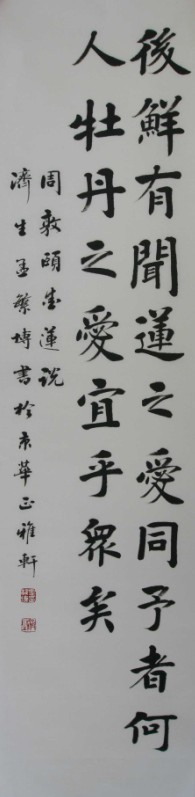 後鮮有聞蓮之愛同予者何
人牡丹之愛宜乎衆矣
周敦頤愛蓮说
濟生孟繁博書於京華正雅軒